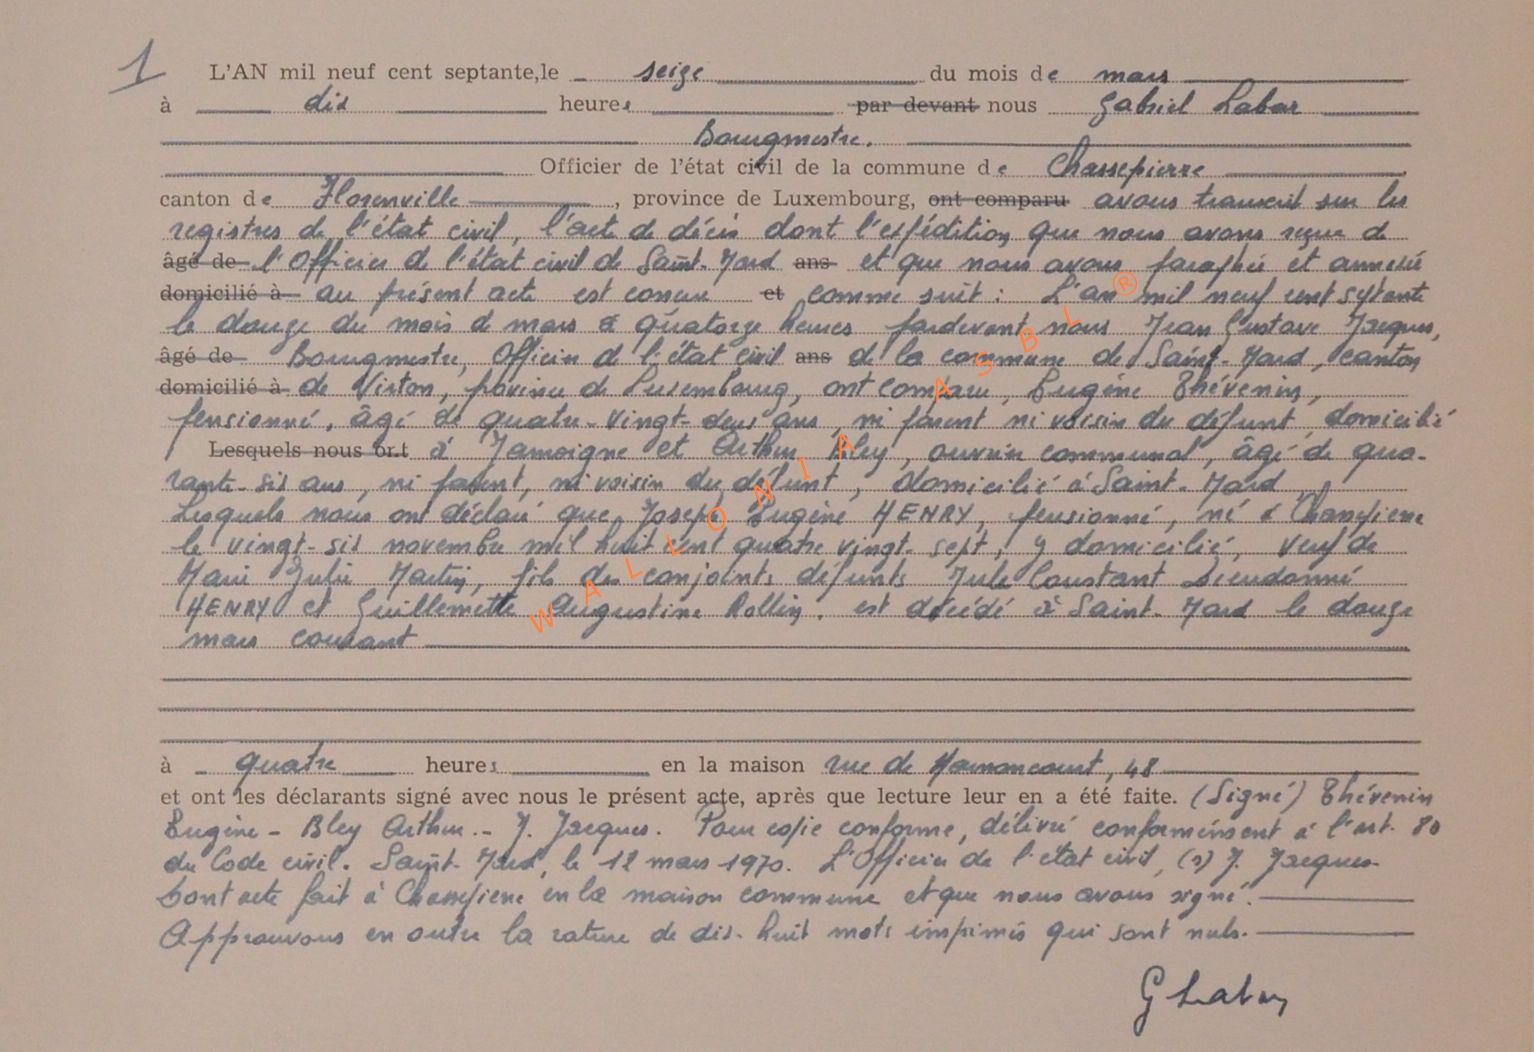 1
L'AN mil neuf cent septante, le seize du mois de mars
à dix heures par devant nous Gabriel Labar
Bourgmestre.
Officier de l'état civil de la commune de Chassepierre
canton de Florenville, province de Luxembourg, ont comparu avons transcrit sur les
registres de l'état civil, l'acte de décès dont l'expédition que nous avons reçue de
âgé de l'Officier de l'état civil de Saint-Mard ans et que nous avons paraphée et annexée
domicilié à au présent acte est conçu et comme suit : L'an mil neuf cent septante
le douze du mois de mars à quatorze heures pardevant nous Jean Gustave Jacques,
âgé de Bourgmestre, Officier de l'état civil ans de la commune de Saint-Mard, canton
domicilié à de Virton, province de Luxembourg, ont comparu, Eugène Thévenin,
pensionné, âgé de quatre-vingt-deux ans, ni parent ni voisin du défunt, domicilié
Lesquels nous ont à Jamoigne et Arthur Bley, ouvrier communal, âgé de qua-
rante-six ans, ni parent, ni voisin du défunt, domicilié à Saint-Mard
Lesquels nous ont déclaré que Joseph Eugène HENRY, pensionné, né à Chassepierre
le vingt-six novembre mil huit cent quatre vingt-sept, y domicilié, veuf de
Marie Julie Martin, fils des conjoints défunts Jule Constant Dieudonné
HENRY et Guillemette Augustine Rollin. est décédé à Saint-Mard le douze
mars courant
à quatre heures en la maison rue de Harnoncourt, 48
et ont les déclarants signé avec nous le présent acte, après que lecture leur en a été faite. (Signé) Thévenin
Eugène - Bley Arthur - J. Jacques. Pour copie conforme, délivré conformément à l'art. 80
du Code civil. Saint-Mard, le 12 mars 1970. L'Officier de l'état civil, (s) J. Jacques
Dont acte fait à Chassepierre en la maison commune et que nous avons signé.
Approuvons en outre la rature de dix-huit mots imprimés qui sont nuls.
G Labar
WALLONIA ASBL ®